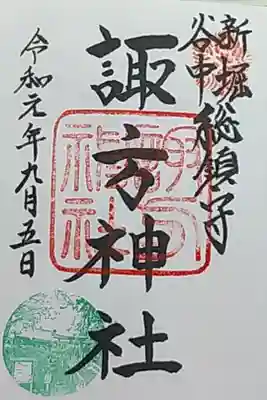 新堀
谷中
総鎮守
諏方神社
令和元年九月五日
諏方
神社